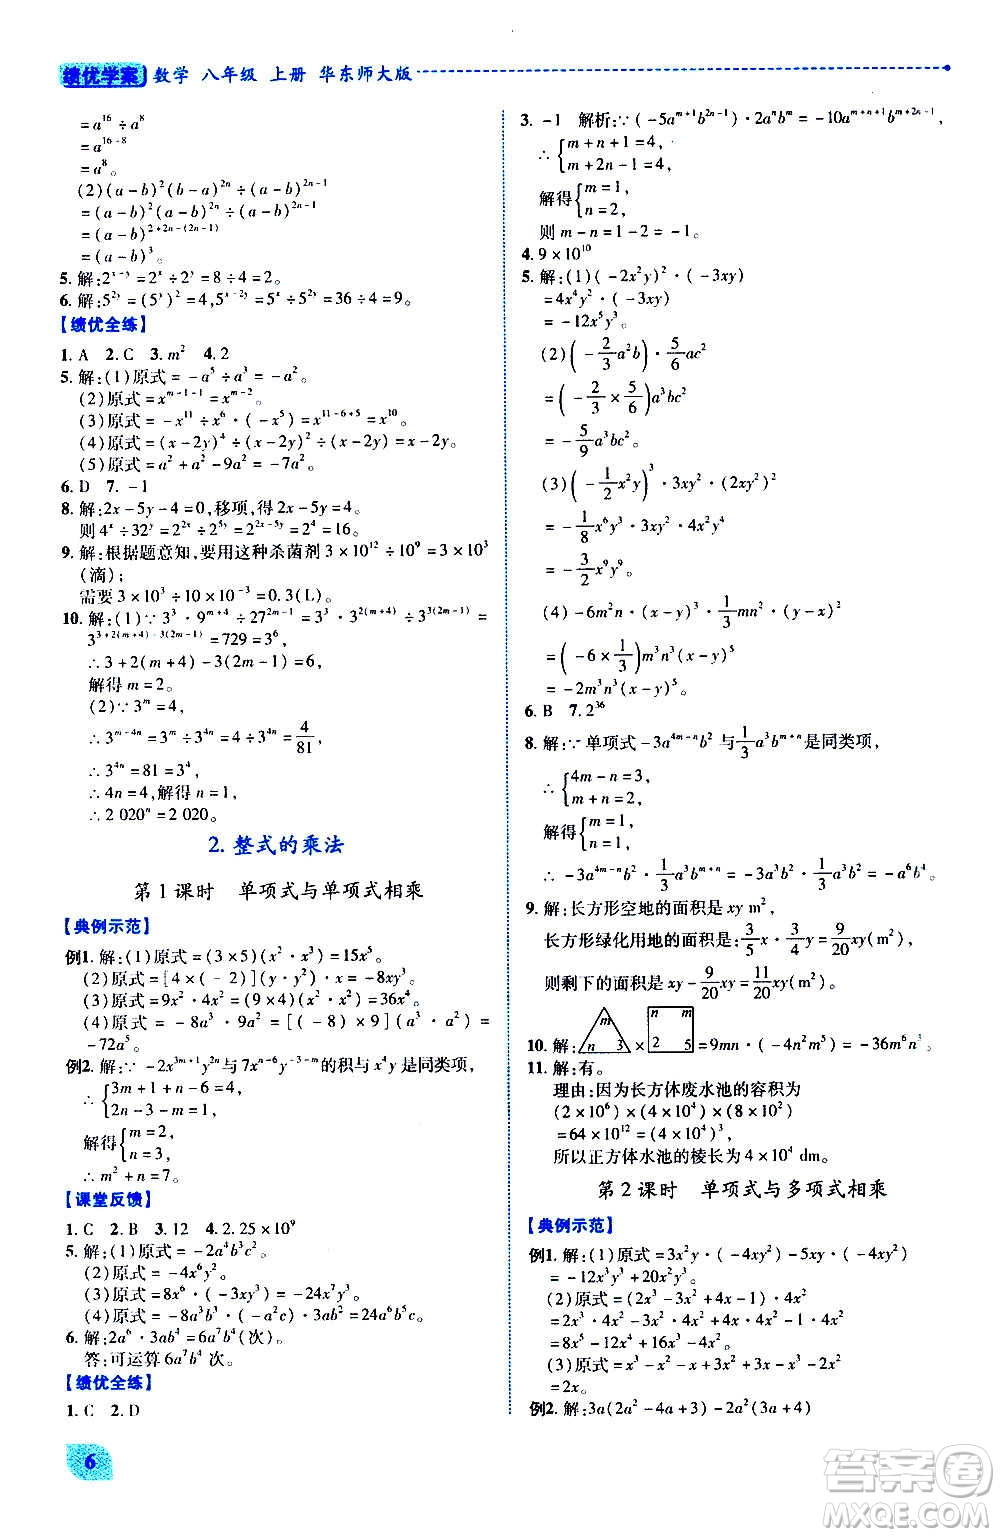 绩优学案 数学 八年级 上册 华东师大版
=a^16÷a^8
=a^(16-8)
=a^8。
(2)(a-b)^2(b-a)^(2n)÷(a-b)^(2n-1)
=(a-b)^2(a-b)^(2n)÷(a-b)^(2n-1)
=(a-b)^(2+2n-(2n-1))
=(a-b)^3。
5. 解:2^(x-y)=2^x÷2^y=8÷4=2。
6. 解:5^(2y)=(5^y)^2=4,5^(x-2y)=5^x÷5^(2y)=36÷4=9。
【绩优全练】
1. A 2. C 3. m^2 4. 2
5. 解:(1)原式=-a^5÷a^3=-a^2。
(2)原式=x^(m-1-1)=x^(m-2)。
(3)原式=-x^11÷x^6·(-x^5)=x^(11-6+5)=x^10。
(4)原式=(x-2y)^4÷(x-2y)^3=x-2y。
(5)原式=a^2+a^2-9a^2=-7a^2。
6. D 7. -1
8. 解:2x-5y-4=0,移项,得2x-5y=4。
则4^x÷32^y=2^(2x)÷2^(5y)=2^(2x-5y)=2^4=16。
9. 解:根据题意知,要用这种杀菌剂3×10^12÷10^9=3×10^3
(滴);
需要3×10^3÷10×10^(-3)=0.3(L)。
10. 解:(1)∵3^3·9^(m+4)÷27^(2m-1)=3^3·3^(2(m+4))÷3^(3(2m-1))=
3^(3+2(m+4)-3(2m-1))=729=3^6,
∴3+2(m+4)-3(2m-1)=6,
解得m=2。
(2)∵3^m=4,
∴3^(m-4n)=3^m÷3^(4n)=4÷3^(4n)=4/81,
∴3^(4n)=81=3^4,
∴4n=4,解得n=1,
∴2 020^n=2 020。
2. 整式的乘法
第1课时 单项式与单项式相乘
【典例示范】
例1. 解:(1)原式=(3×5)(x^2·x^3)=15x^5。
(2)原式=[4×(-2)](y·y^2)·x=-8xy^3。
(3)原式=9x^2·4x^2=(9×4)(x^2·x^2)=36x^4。
(4)原式=-8a^3·9a^2=[(-8)×9](a^3·a^2)=
-72a^5。
例2. 解:∵-2x^(3m+1)y^(2n)与7x^(n-6)y^(-3-m)的积与x^4y是同类项,
∴{3m+1+n-6=4,
2n-3-m=1,
解得{m=2,
n=3,
∴m^2+n=7。
【课堂反馈】
1. C 2. B 3. 12 4. 2.25×10^9
5. 解:(1)原式=-2a^4b^3c^2。
(2)原式=-4x^6y^2。
(3)原式=8x^6·(-3xy^3)=-24x^7y^3。
(4)原式=-8a^3b^3·(-a^2c)·3ab^2=24a^6b^5c。
6. 解:2a^6·3ab^2=6a^7b^2(次)。
答:可运算6a^7b^2次。
【绩优全练】
1. C 2. D
3. -1 解析:∵(-5a^(m+1)b^(2n-1))·2a^nb^m=-10a^4b^4,
∴{m+n+1=4,
m+2n-1=4,
解得{m=1,
n=2,
则m-n=1-2=-1。
4. 9×10^10
5. 解:(1)(-2x^2y)^2·(-3xy)
=4x^4y^2·(-3xy)
=-12x^5y^3。
(2)(-2/3a^2b)·5/6ac^2
=(-2/3×5/6)a^3bc^2
=-5/9a^3bc^2。
(3)(-1/2x^2y)^3·3xy^2·(2xy^2)^2
=-1/8x^6y^3·3xy^2·4x^2y^4
=-3/2x^9y^9。
(4)-6m^2n·(x-y)^3·1/3mn^2·(y-x)^2
=(-6×1/3)m^3n^3(x-y)^5
=-2m^3n^3(x-y)^5。
6. B 7. 2^36
8. 解:∵单项式-3a^(4m-n)b^2与1/3a^3b^(m+n)是同类项,
∴{4m-n=3,
m+n=2,
解得{m=1,
n=1,
∴-3a^(4m-n)b^2·1/3a^3b^(m+n)=-3a^3b^2·1/3a^3b^2=-a^6b^4。
9. 解:长方形空地的面积是xy m^2,
长方形绿化用地的面积是:3/5x·3/4y=9/20xy(m^2),
则剩下的面积是xy-9/20xy=11/20xy(m^2)。
10. 解:m n 3×n m 2 5=9mn·(-4n^2m^5)=-36m^6n^3。
11. 解:有。
理由:因为长方体废水池的容积为
(2×10^5)×(4×10^4)×(8×10^3)
=64×10^12=(4×10^4)^3,
所以正方体水池的棱长为4×10^4 dm。
第2课时 单项式与多项式相乘
【典例示范】
例1. 解:(1)原式=3x^2y·(-4xy^2)-5xy^2·(-4x^2)=
=-12x^3y^3+20x^3y^2。
(2)原式=2x^3·(2x^2-3x^3+4x+8x^3)
=2x^3·4x^2-2x^3·3x+2x^3·8
=8x^5-12x^4+16x^3-8x^3。
(3)原式=-x^3+x^2-x+x^3-x^2+3x
=2x。
例2. 解:3a(2a^2-4a+3)-2a^2(3a+4)
6
答案圈
MXQE.COM